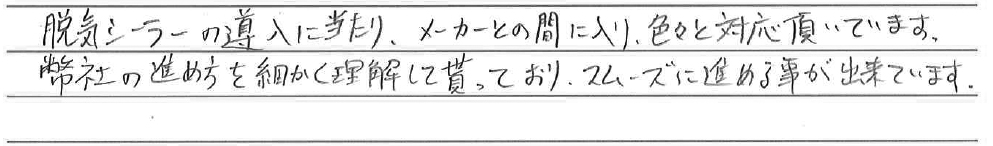 脱気シーラーの導入に当たり、メーカーとの間に入り、色々と対応頂いています。
弊社の進め方を細かく理解して貰っており、スムーズに進める事が出来ています。